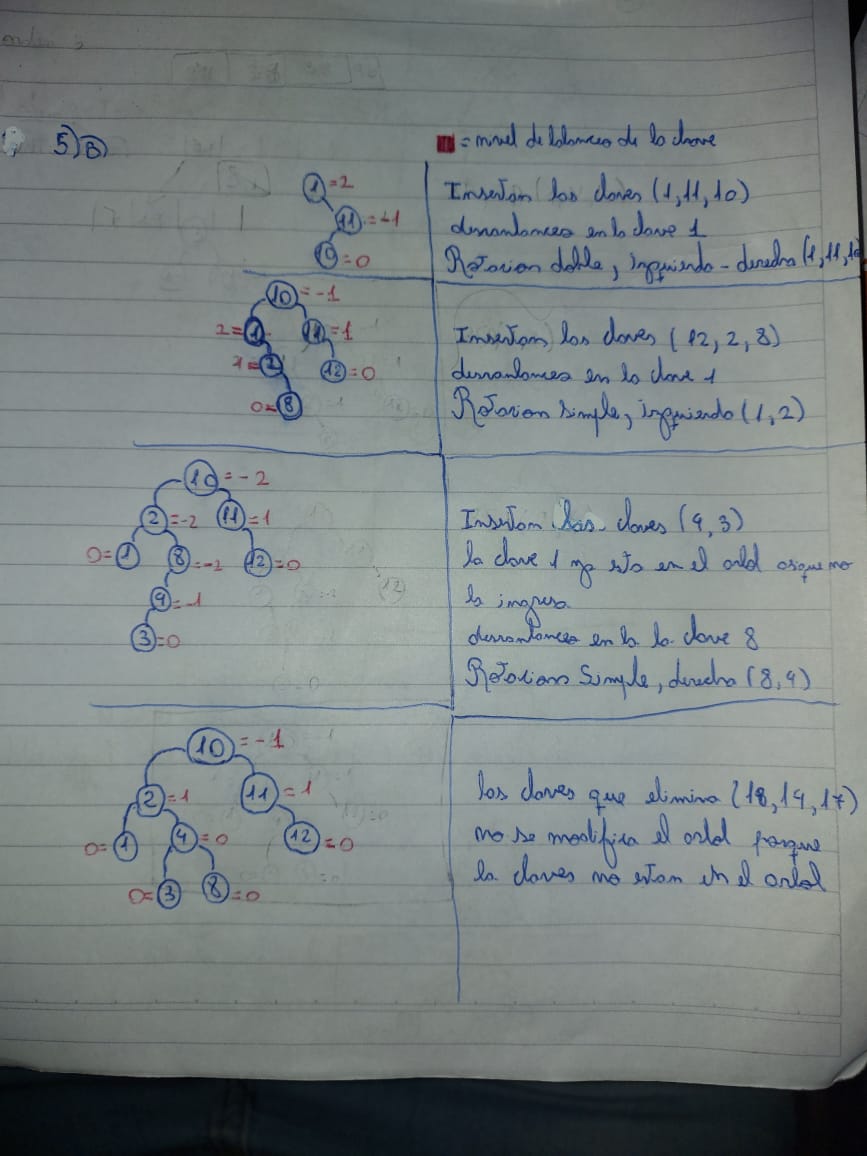 5)B)
= nivel de balanceo de la clave
1 =2
11 =-1
10 =0
Insertan las claves (1,11,10)
desvalancea en la clave 1
Rotacion doble, izquierda-derecha (1,11,10
10 =-1
2= 1 11 =1
1= 2 12 =0
0= 8
Insertan las claves (12,2,8)
desvalancea en la clave 1
Rotacion simple, izquierda (1,2)
10 =-2
2 =-2 11 =1
0= 1 8 =-2 12 =0
4 =-1
3 =0
Insertan las claves (4,3)
la clave 1 ya esta en el arbol asique no
la ingresa
desvalancea en la la clave 8
Rotacion Simple, derecha (8,4)
10 =-1
2 =1 11 =1
0= 1 4 =0 12 =0
0= 3 8 =0
las claves que elimina (18,14,17)
no se modifica el arbol porque
la claves no estan en el arbol